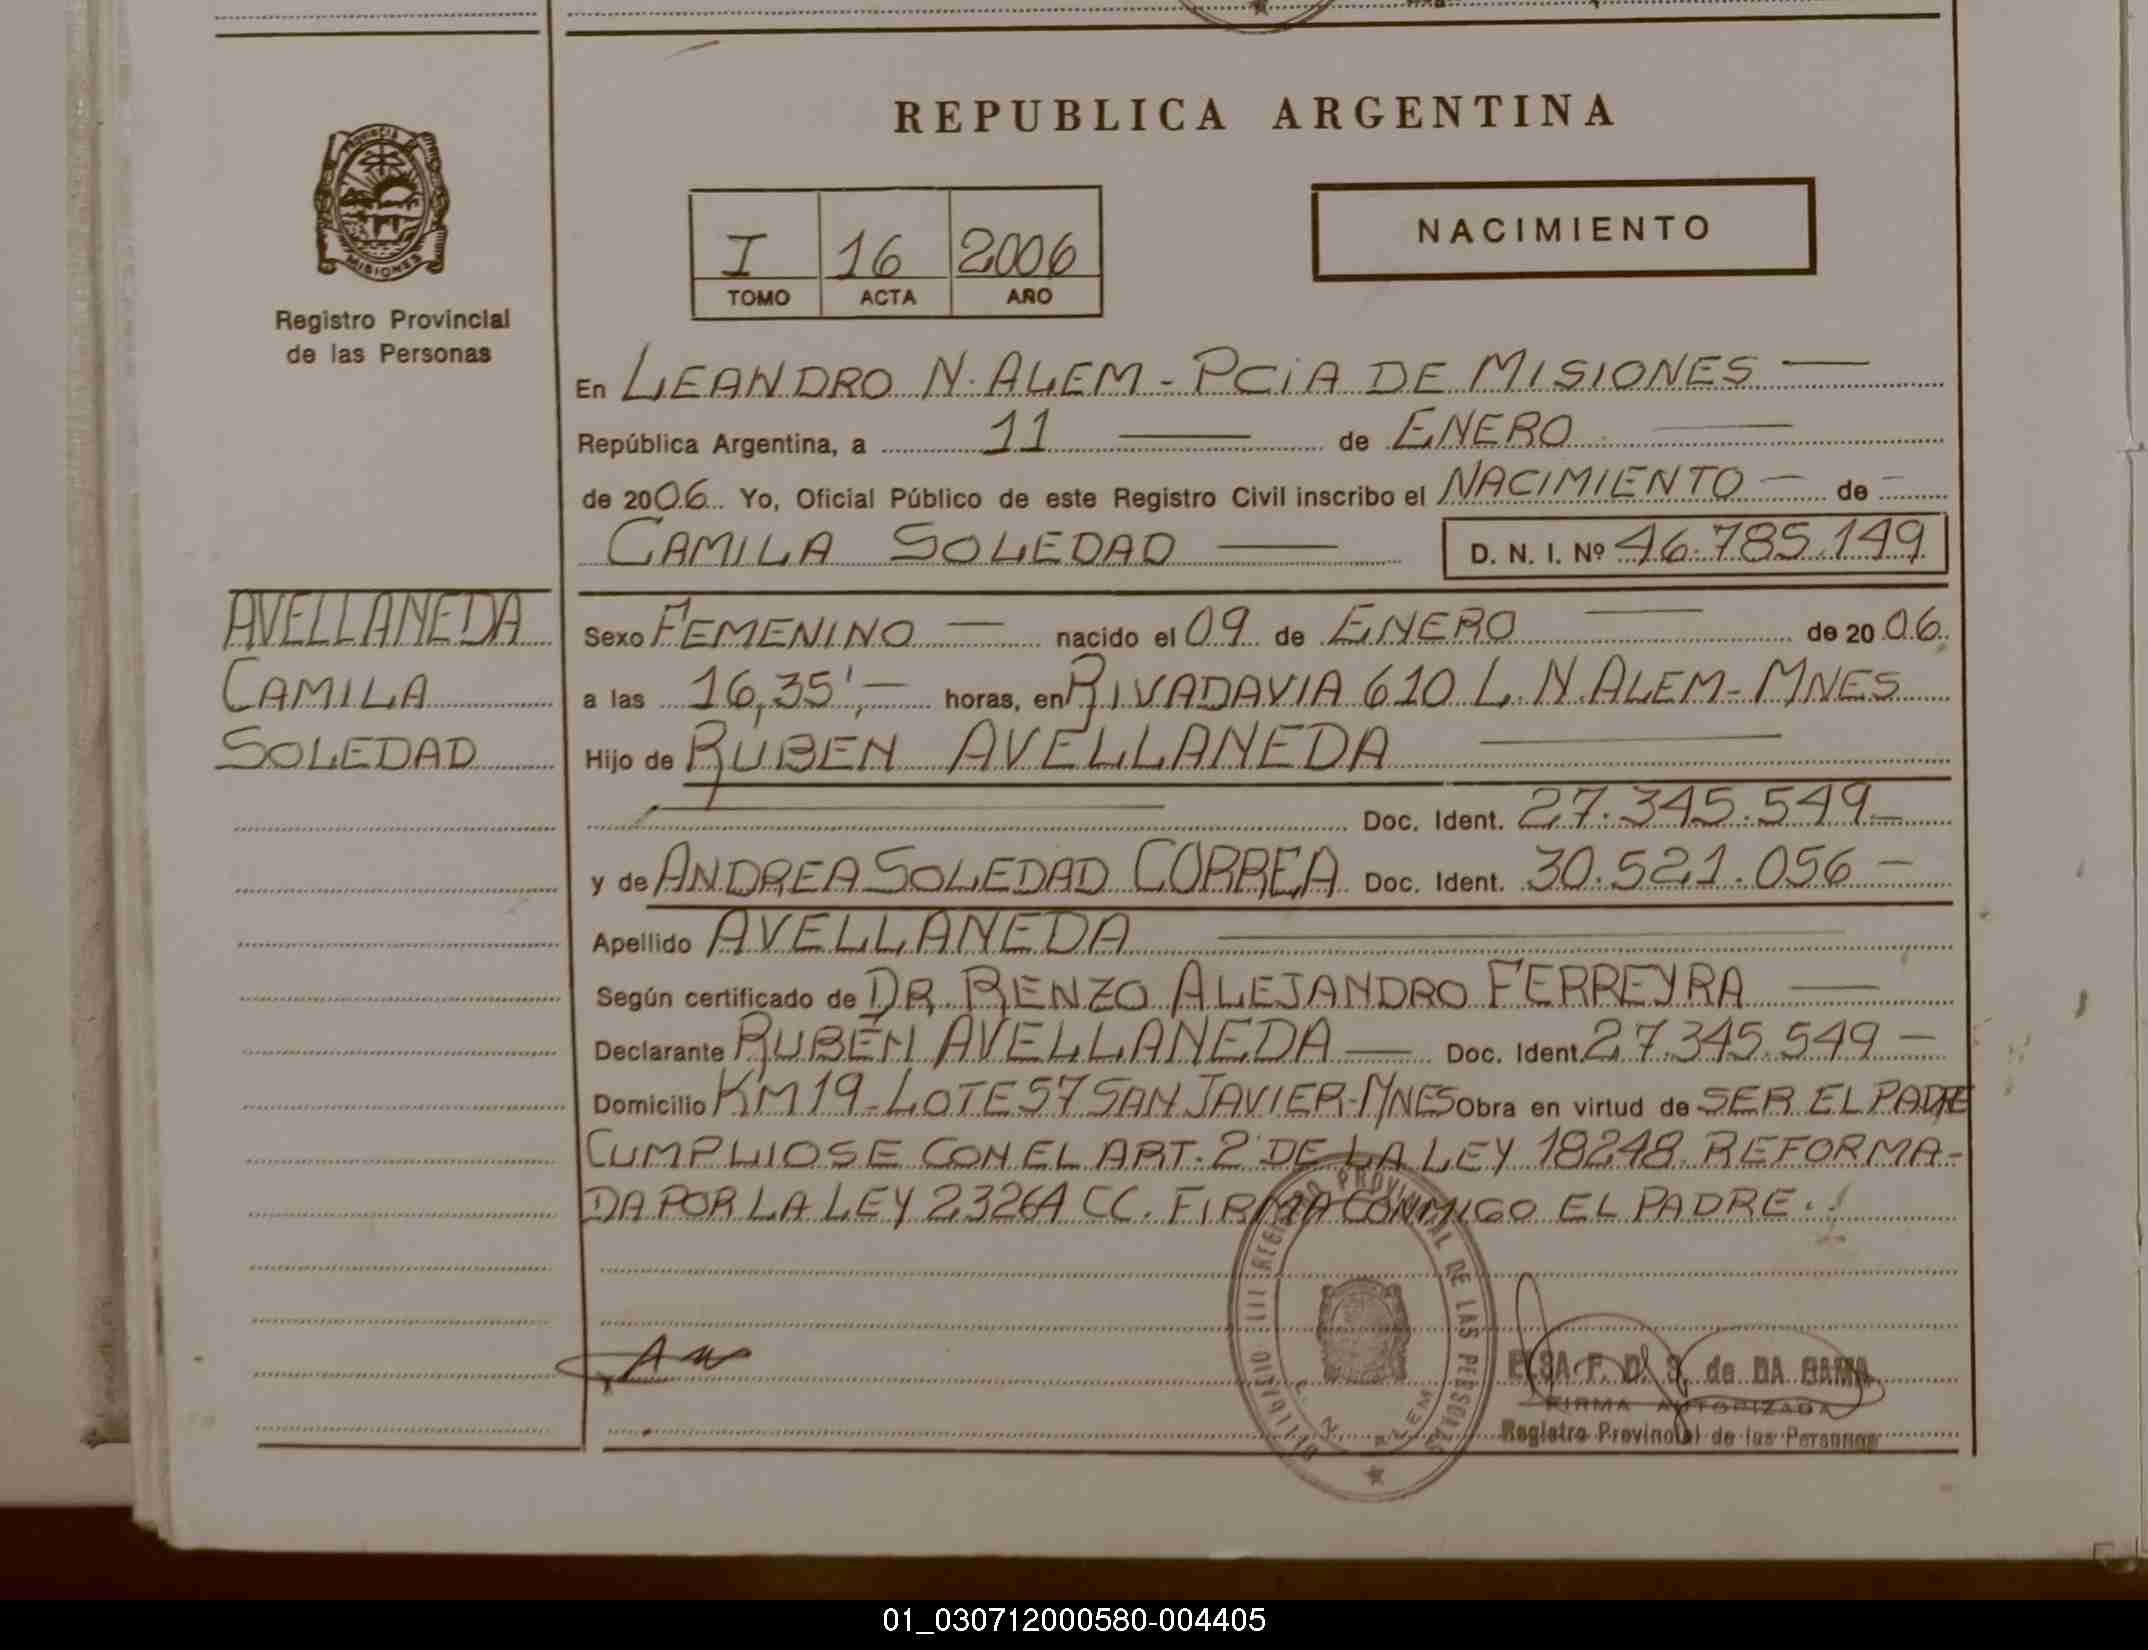 REPUBLICA ARGENTINA
PROVINCIA
MISIONES
Registro Provincial
de las Personas
I 16 2006
TOMO ACTA AÑO
NACIMIENTO
En LEANDRO N. ALEM - PCiA DE MISIONES —
República Argentina, a 11 — de ENERO —
de 2006 Yo, Oficial Público de este Registro Civil inscribo el NACIMIENTO — de —
CAMILA SOLEDAD — D. N. I. Nº 46.785.149
AVELLANEDA
CAMILA
SOLEDAD
Sexo FEMENINO — nacido el 09 de ENERO — de 2006
a las 16,35' — horas, en RIVADAVIA 610 L. N. ALEM - MNES
Hijo de RUBEN AVELLANEDA —
— Doc. Ident. 27.345.549 —
y de ANDREA SOLEDAD CORREA Doc. Ident. 30.521.056 —
Apellido AVELLANEDA —
Según certificado de DR. RENZO ALEJANDRO FERREYRA —
Declarante RUBÉN AVELLANEDA — Doc. Ident. 27.345.549 —
Domicilio KM 19 - LOTE 57 SAN JAVIER - MNES Obra en virtud de SER EL PADRE
CUMPLIOSE CON EL ART. 2 DE LA LEY 18248 REFORMA-
DA POR LA LEY 23264 CC. FIRMA CONMIGO EL PADRE.
REGISTRO PROVINCIAL DE LAS PERSONAS
L. N. ALEM
ELSA F. D. S. de DA GAMA
FIRMA AUTORIZADA
Registro Provincial de las Personas
01_030712000580-004405